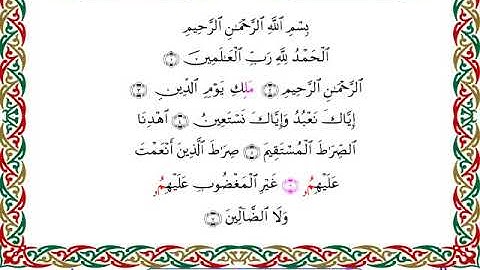 بِسْمِ ٱللَّهِ ٱلرَّحْمَٰنِ ٱلرَّحِيمِ
ٱلْحَمْدُ لِلَّهِ رَبِّ ٱلْعَٰلَمِينَ ١
ٱلرَّحْمَٰنِ ٱلرَّحِيمِ ٢ مَلِكِ يَوْمِ ٱلدِّينِ ٣
إِيَّاكَ نَعْبُدُ وَإِيَّاكَ نَسْتَعِينُ ٤ ٱهْدِنَا
ٱلصِّرَٰطَ ٱلْمُسْتَقِيمَ ٥ صِرَٰطَ ٱلَّذِينَ أَنْعَمْتَ
عَلَيْهِمُۥ ٦ غَيْرِ ٱلْمَغْضُوبِ عَلَيْهِمُۥ
وَلَا ٱلضَّآلِّينَ ٧